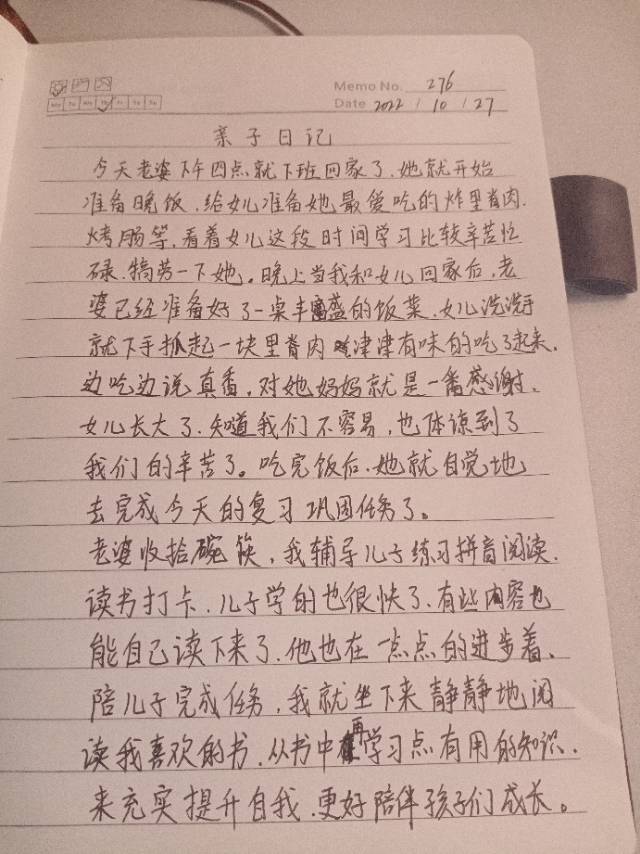 Memo No. 276
Date 2022 / 10 / 27
亲子日记
今天老婆下午四点就下班回家了,她就开始
准备晚饭,给女儿准备她最爱吃的炸里脊肉,
烤肠等,看着女儿这段时间学习比较辛苦忙
碌,犒劳一下她。晚上当我和女儿回家后,老
婆已经准备好了一桌丰盛的饭菜,女儿洗洗手
就下手抓起一块里脊肉津津有味的吃了起来,
边吃边说真香,对她妈妈就是一番感谢。
女儿长大了,知道我们不容易,也体谅到了
我们的辛苦了。吃完饭后,她就自觉地
去完成今天的复习巩固任务了。
老婆收拾碗筷,我辅导儿子练习拼音阅读,
读书打卡,儿子学的也很快了,有些内容也
能自己读下来了,他也在一点点的进步着,
陪儿子完成任务,我就坐下来静静地阅
读我喜欢的书,从书中再学习点有用的知识,
来充实提升自我,更好陪伴孩子们成长。